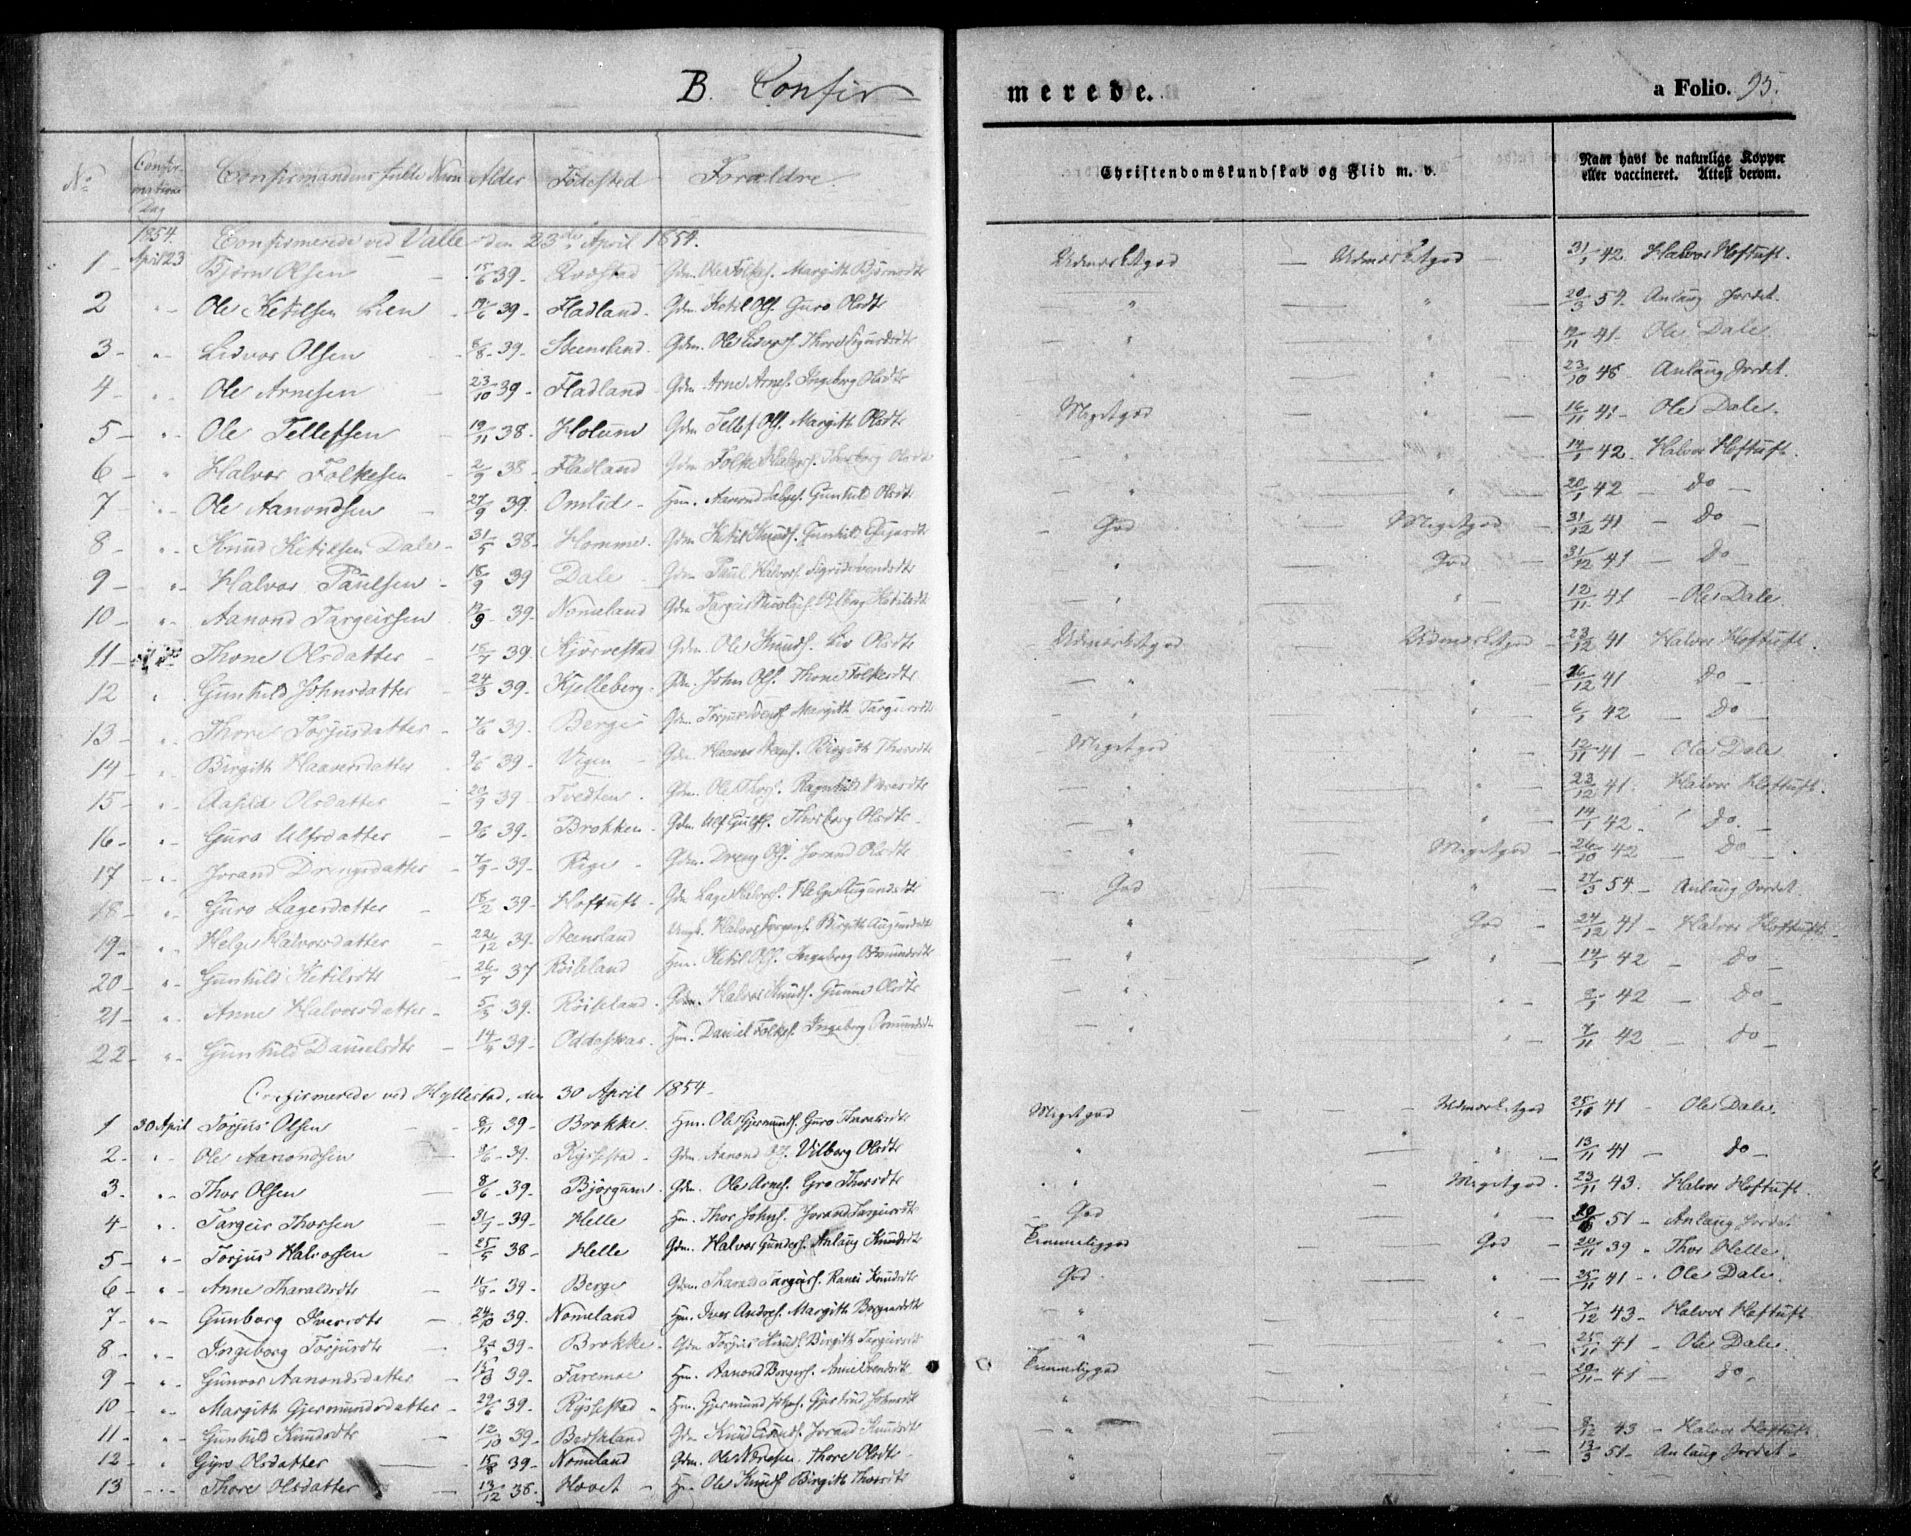 B. Confir
merede.
a Folio. 95.
No Confirmations Dag Confirmandens fulde Navn Alder Fødested Forældre. Christendomskundskab og Flid m. v. Naar havt de naturlige Kopper eller vaccineret. Attest derom.
1854. Confirmerede ved Valle den 23de April 1854.
1 April 23 Bjørn Olsen 15/6 39. Gdm. Ole Folkes. Margith Bjørnsdtr Udmærketgod Udmærketgod 31/1 42 Halvor Hoftuft.
2 " Ole Ketilsen Lien 19/6 39 Fladland Gdm. Ketil Ols. Guro Olsdtr " " 20/3 54. Anlaug Jordet.
3 " Lidvor Olsen 8/8 39. Steensland Gdm. Ole Lidvors. Thore Sigurdsdtr " " 12/11 41 Ole Dale.
4 " Ole Arnesen 23/10 39 Fladland Gdm. Arne Arnes. Ingeborg Olsdtr " " 23/10 46 Anlaug Jordet.
5 " Ole Tellefsen 19/11 38. Holum Gdm Tellef Ols. Margith Olsdtr Megetgod " 16/11 41 Ole Dale.
6 " Halvor Folkesen 2/9 38 Fladland Gdm Folke Halvors. Olsdtr " " 14/1 42 Halvor Hoftuft.
7 " Ole Aanondsen 27/9 39. Omlid Hm. Aanond Gunhild Olsdtr " " 20/1 42 do
8 " Knud Ketilsen Dale 31/5 38 Homme. Gdm Ketil Knuds. Gunhild God Megetgod 31/12 41 Do
9 " Halvor Paulsen 18/9 39 Dale Gdm Paul Halvors. Sigrid " God 31/12 41 Do
10 " Aanond Targeirsen 12/9 39. Nomeland Gdm " " 12/11 41 Ole Dale.
11 Thone Olsdatter 15/7 39. Kjørvestad Gdm. Ole Knuds. Liv Olsdtr Udmærketgod Udmærketgod 23/12 41 Halvor Hoftuft.
12 " Gunhild Johnsdatter 24/3 39. Kjelleberg. Gdm. John Ols. Thone Folkesdtr " " 16/12 41 do
13 " Thore Torjusdatter 7/6 39. Berge Gdm. Torjus Margith Targeirsdtr " " 6/1 42 Do
14 " Birgith Haavorsdatter 9/6 39. Vigen Gdm Haavor Birgith Thorsdtr Megetgod " 12/11 41 Ole Dale
15 " Aasild Olsdatter 20/9 39. Tvedten. Gdm. Ole Ragnhild " " 23/12 41. Halvor Hoftuft.
16 " Guro Ulfsdatter 9/6 39. Brokken Gdm. Ulf Thorborg Olsdtr " " 14/1 42. Do.
17 " Jorand Drengsdatter 7/9 39. Rige Gdm. Dreng Ols. Jorand Olsdtr " Megetgod 26/10 42 Do
18 " Guro Lagesdatter 16/2 39. Hoftuft Gdm Lage Halvors. Helge Augundsdtr God " 27/3 54 Anlaug Jordet.
19 " Helge Halvorsdatter 22/12 39. Steensland Halvor Birgith Augundsdtr " God 24/12 41 Halvor Hoftuft.
20 " Gunhild Ketilsdtr 26/7 37 Røiseland Hm. Ketil Ols. Ingeborg Osmundsdtr " " 14/1 42 Do
21 " Anne Halvorsdatter 5/5 39. Røiseland. Gdm. Halvor Knuds. Gunne Olsdtr " " 8/1 42 Do
22 " Gunhild Danielsdtr 14/4 39. Oddeskar. Hm. Daniel Folkes. Ingeborg Osmundsdtr " " 7/11 42 do
Confirmerede ved Hyllestad, den 30 April 1854.
1 30 April Torjus Olsen 8/11 39 Brokke. Hm. Ole Gjermunds. Guro Tharaldsdtr Megetgod Udmærketgod 25/10 41 Ole Dale.
2 " Ole Aanondsen 9/6 39. Rysestad Gdm. Aanond Ols. Vilborg Olsdtr " " 13/11 41 do
3 " Thor Olsen 8/6 39 Bjørgum. Gdm. Ole Arnes. Gro Thorsdtr " Megetgod 23/11 43. Halvor Hoftuft.
4 " Targeir Thorsen 31/7 39 Helle Hm. Thor Johns. Jorand Targeirsdtr God " 20/10 51 Anlaug Jordet
5 " Torjus Halvorsen 25/5 38 Helle Gdm. Halvor Gunders. Anlaug Knudsdtr Temmeliggod God 20/11 39 " Thor Helle.
6 " Anne Tharaldsdtr 11/8 39. Berge Gdm. Tharald Targeirs. Ranei Knudsdtr God. " 25/11 41 Ole Dale.
7 " Gunborg Iversdtr 24/10 39. Nomeland Hm. Iver Andres. Margith Borgarsdtr " " 7/12 43 Halvor Hoftuft
8 " Ingeborg Torjusdtr 39. Brokke Gdm. Torjus Knuds. Birgith Targeirsdtr " " 25/11 41 Ole Dale.
9 " Gunvor Aanondsdatter 15/3 39. Faremoe Hm. Aanond Borgers. Temmeliggod 20/11 41 do.
10 " Margith Gjermundsdatter 29/6 39. Rysestad Hm. Gjermund Johns. Gjertrud Johnsdtr "
11 " Gunhild Knudsdtr 12/10 39. Besseland Gdm Knud Jorand Knudsdtr " " 8/12 43 Halvor Hoftuft
12 " Gyro Olsdatter 15/8 39 Nomeland Gdm. Ole Thore Olsdtr " " 13/3 51 Anlaug Jordet
13 " Thore Olsdatter 13/12 38. Hovet Hm. Ole Knuds. Birgith Thorsdtr "